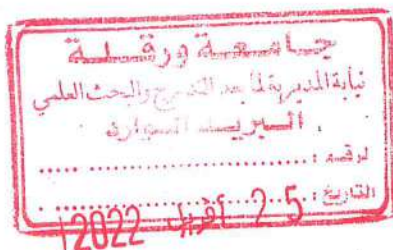 جامعة ورقلة
نيابة المديرية لما بعد التدرج والبحث العلمي
البريد الوارد
الرقم : ..................
التاريخ : 25 أفريل 2022